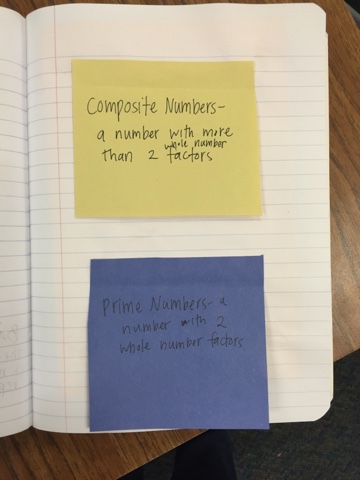 Composite Numbers-
a number with more
whole number
than 2 factors
Prime Numbers- a
number with 2
whole number factors